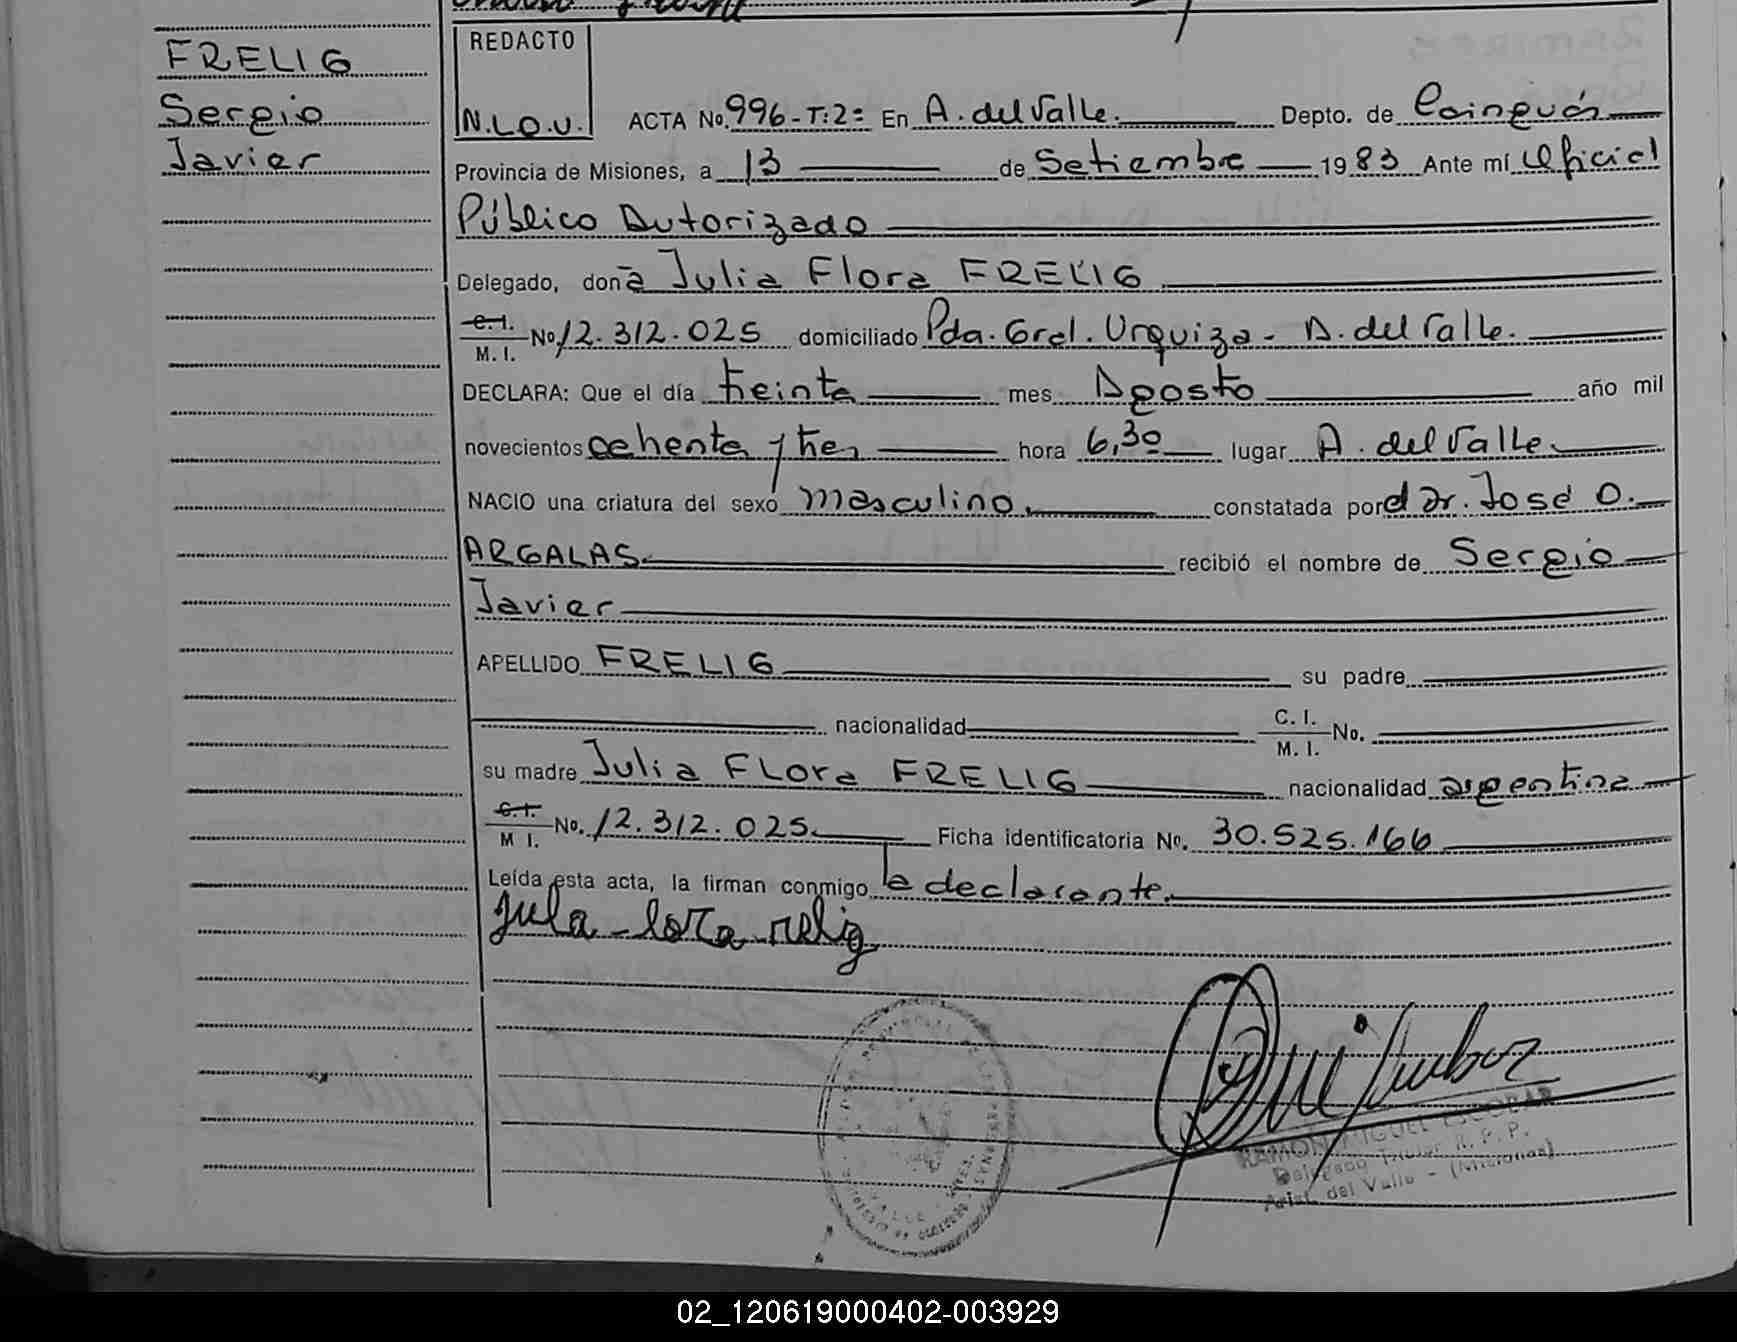 FRELIG
Sergio
Javier
REDACTO
N.L.O.V.
ACTA No. 996-T:2: En A. del Valle. Depto. de Cainguás
Provincia de Misiones, a 13 de Setiembre 1983 Ante mí Oficial
Público Autorizado
Delegado, doña Julia Flora FRELIG
C.I. M.I. No 12.312.025 domiciliado Pda. Gral. Urquiza - A. del Valle.
DECLARA: Que el día treinta mes Agosto año mil
novecientos ochenta y tres hora 6,30 lugar A. del Valle
NACIO una criatura del sexo masculino, constatada por el Dr. José O.
ARGALAS recibió el nombre de Sergio
Javier
APELLIDO FRELIG su padre
nacionalidad C. I. M. I. No.
su madre Julia FLora FRELIG nacionalidad argentina
C.I. M I. No. 12.312.025 Ficha identificatoria No. 30.525.166
Leída esta acta, la firman conmigo la declarante.
jula lora relig
RAMON MIGUEL ESCOBAR
Delegado Titular R. P. P.
Arist. del Valle - (Misiones)
02_120619000402-003929